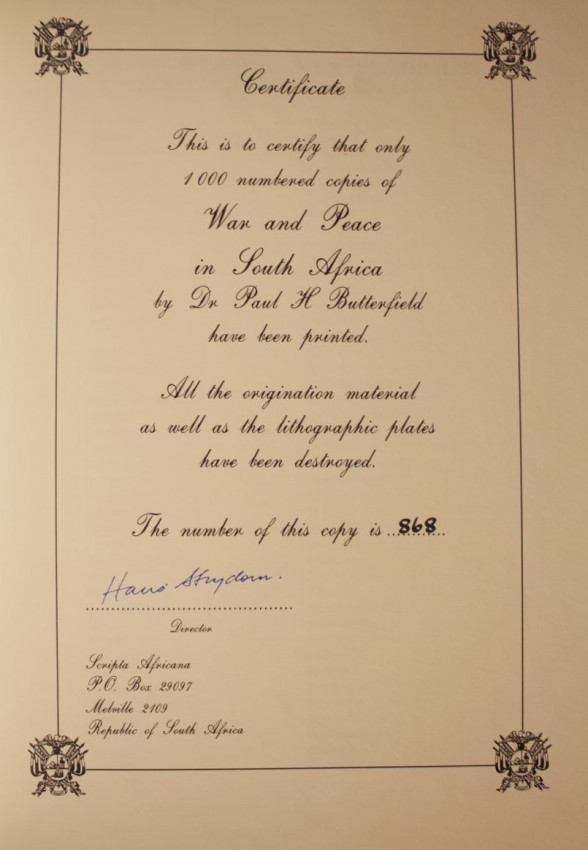 Certificate
This is to certify that only
1000 numbered copies of
War and Peace
in South Africa
by Dr Paul H Butterfield
have been printed.
All the origination material
as well as the lithographic plates
have been destroyed.
The number of this copy is ..868..
Hans Strydom.
Director
Scripta Africana
P.O. Box 29097
Melville 2109
Republic of South Africa